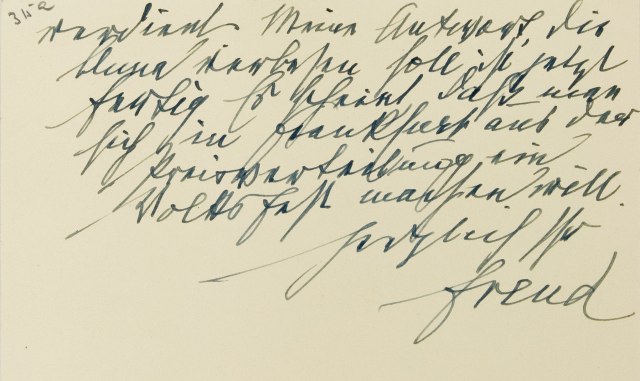 35a
verdient. Meine Antwort, die
Anna verlesen soll ist jetzt
fertig. Es scheint daß man
sich in Frankfurt aus der
Preisverteilung ein
Volksfest machen will.
Herzlich Ihr
Freud